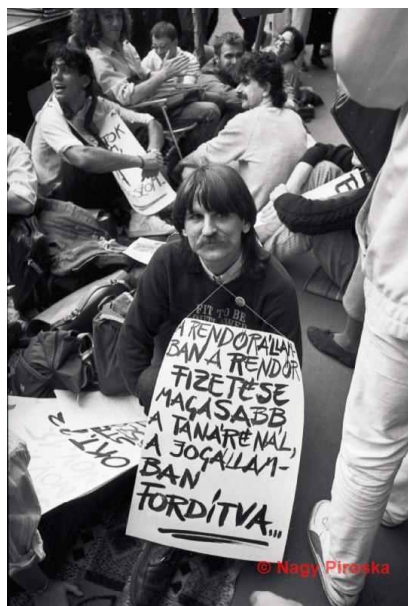 FIT TO BE
A RENDŐRÁLLAM-
BAN A RENDŐR
FIZETÉSE
MAGASABB
A TANÁRÉNÁL,
A JOGÁLLAM-
BAN
FORDÍTVA...
© Nagy Piroska